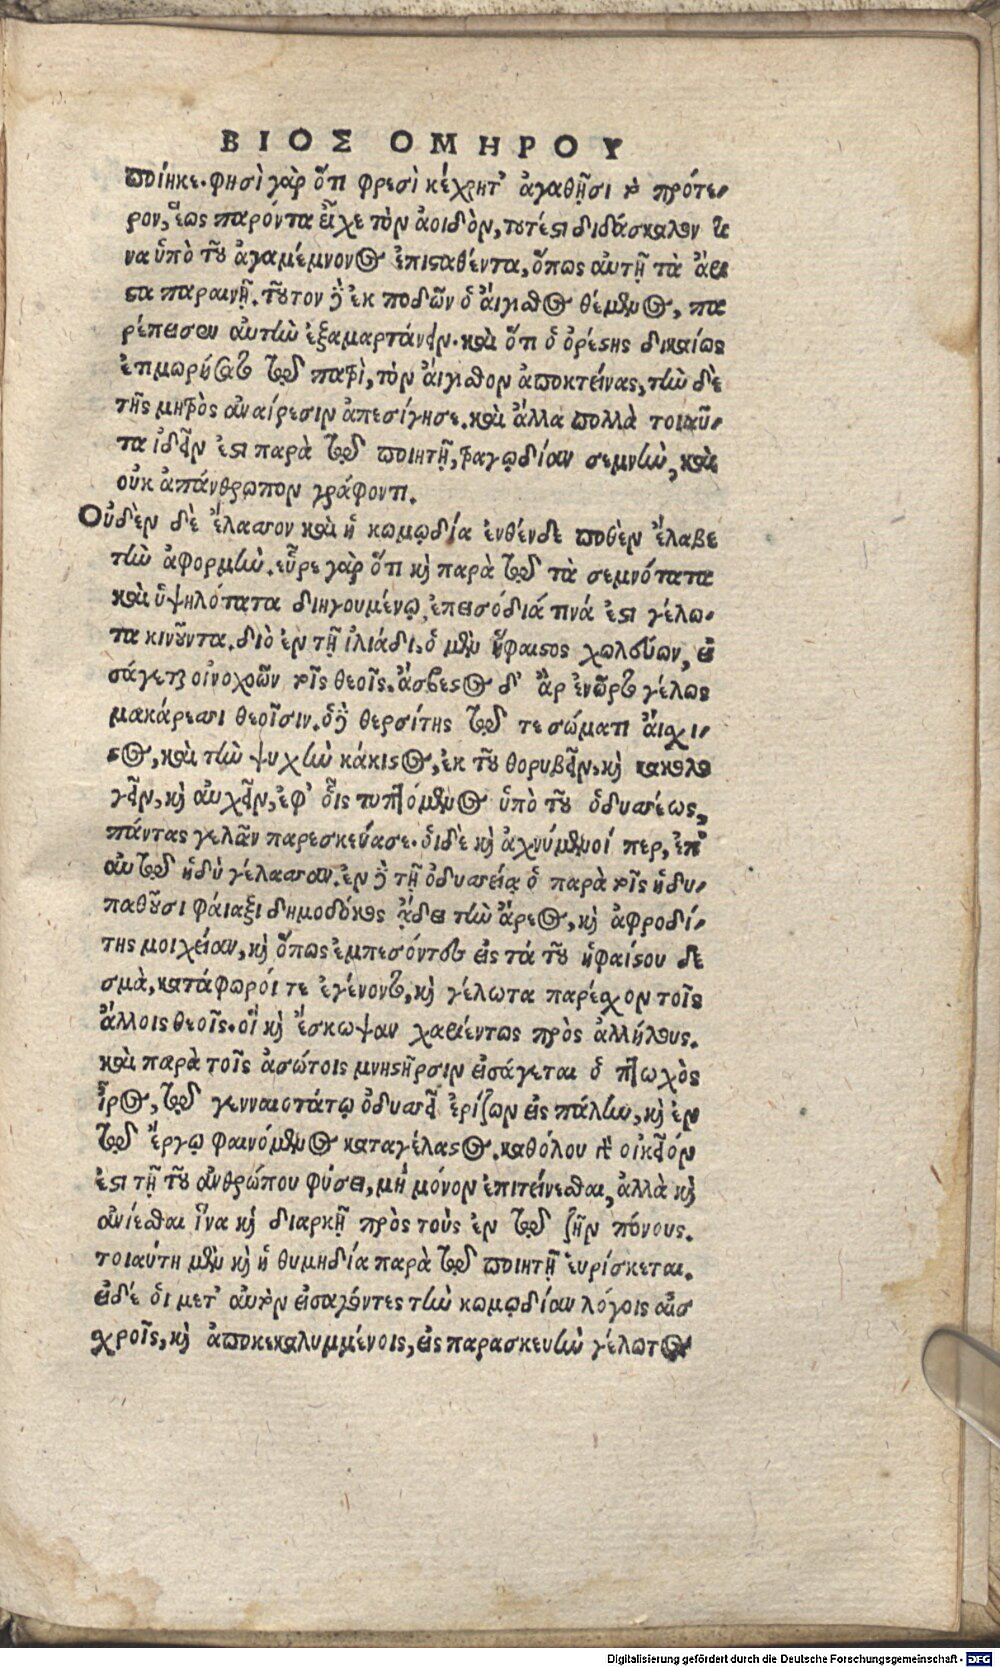 ΒΙΟΣ ΟΜΗΡΟΥ
ποίηκε. φησὶ γὰρ ὅτι φρεσὶ κέχρητ' ἀγαθῇσι τὸ πρότε-
ρον, ἕως παρόντα εἶχε τὸν ἀοιδὸν, τουτέστι διδάσκαλον τι
να ὑπὸ τοῦ ἀγαμέμνονος ἐπισταθέντα, ὅπως αὐτῇ τὰ ἄρι
στα παραινῇ. τοῦτον δὲ ἐκ ποδῶν ὁ αἴγισθος θέμενος, πα
ρέπεισεν αὐτὴν ἐξαμαρτάνειν. καὶ ὅτι ὁ ὀρέστης δικαίως
ἐτιμωρήσατο τῷ πατρὶ, τὸν αἴγισθον ἀποκτείνας, τὴν δὲ
τῆς μητρὸς ἀναίρεσιν ἀπεσίγησε. καὶ ἄλλα πολλὰ τοιαῦ-
τα ἰδεῖν ἐστι παρὰ τῷ ποιητῇ, τραγῳδίαν σεμνὴν, καὶ
οὐκ ἀπάνθρωπον γράφοντι.
Οὐδὲν δὲ ἔλασσον καὶ ἡ κωμῳδία ἐνθένδε ποθὲν ἔλαβε
τὴν ἀφορμὴν. εὗρε γὰρ ὅτι καὶ παρὰ τῷ τὰ σεμνότατα
καὶ ὑψηλότατα διηγουμένῳ, ἐπεισόδιά τινά ἐστι γέλω-
τα κινοῦντα. διὸ ἐν τῇ ἰλιάδι, ὁ μὲν ἥφαιστος χωλεύων, εἰ
σάγεται οἰνοχοῶν τοῖς θεοῖς. ἄσβεστος δ' ἂρ ἐνῶρτο γέλως
μακάρεσσι θεοῖσιν. ὁ δὲ θερσίτης τῷ τε σώματι αἴσχι-
στος, καὶ τὴν ψυχὴν κάκιστος, ἐκ τοῦ θορυβεῖν, καὶ κακολο
γεῖν, καὶ αὐχεῖν, ἐφ' οἷς τυπτόμενος ὑπὸ τοῦ ὀδυσσέως,
πάντας γελᾶν παρεσκεύασε. οἱ δὲ καὶ ἀχνύμενοί περ, ἐπ'
αὐτῷ ἡδὺ γέλασσαν. ἐν δὲ τῇ ὀδυσσείᾳ ὁ παρὰ τοῖς ἡδυ-
παθοῦσι φαίαξι δημοδόκος ᾄδει τὴν ἄρεος, καὶ ἀφροδί-
της μοιχείαν, καὶ ὅπως ἐμπεσόντες εἰς τὰ τοῦ ἡφαίστου δε
σμὰ, κατάφωροί τε ἐγένοντο, καὶ γέλωτα παρέσχον τοῖς
ἄλλοις θεοῖς. οἳ καὶ ἔσκωψαν χαριέντως πρὸς ἀλλήλους.
καὶ παρὰ τοῖς ἀσώτοις μνηστῆρσιν εἰσάγεται ὁ πτωχὸς
ἶρος, τῷ γενναιοτάτῳ ὀδυσσεῖ ἐρίζων εἰς πάλην, καὶ ἐν
τῷ ἔργῳ φαινόμενος καταγέλαστος. καθόλου τε οἰκεῖόν
ἐστι τῇ τοῦ ἀνθρώπου φύσει, μὴ μόνον ἐπιτείνεσθαι, ἀλλὰ καὶ
ἀνίεσθαι ἵνα καὶ διαρκῇ πρὸς τοὺς ἐν τῷ ζῆν πόνους.
τοιαύτη μὲν καὶ ἡ θυμηδία παρὰ τῷ ποιητῇ ἑυρίσκεται.
εἰ δέ οἱ μετ' αὐτὸν εἰσαγόντες τὴν κωμῳδίαν λόγοις αἰσ
χροῖς, καὶ ἀποκεκαλυμμένοις, εἰς παρασκευὴν γέλωτος
Digitalisierung gefördert durch die Deutsche Forschungsgemeinschaft - DFG